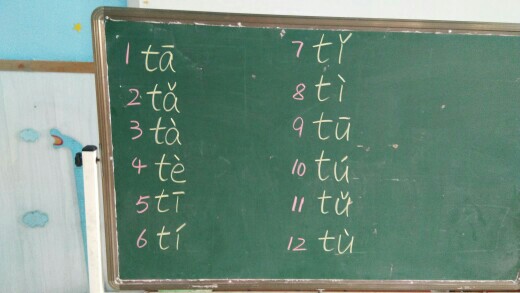 1 tā
2 tǎ
3 tà
4 tè
5 tī
6 tí
7 tǐ
8 tì
9 tū
10 tú
11 tǔ
12 tù